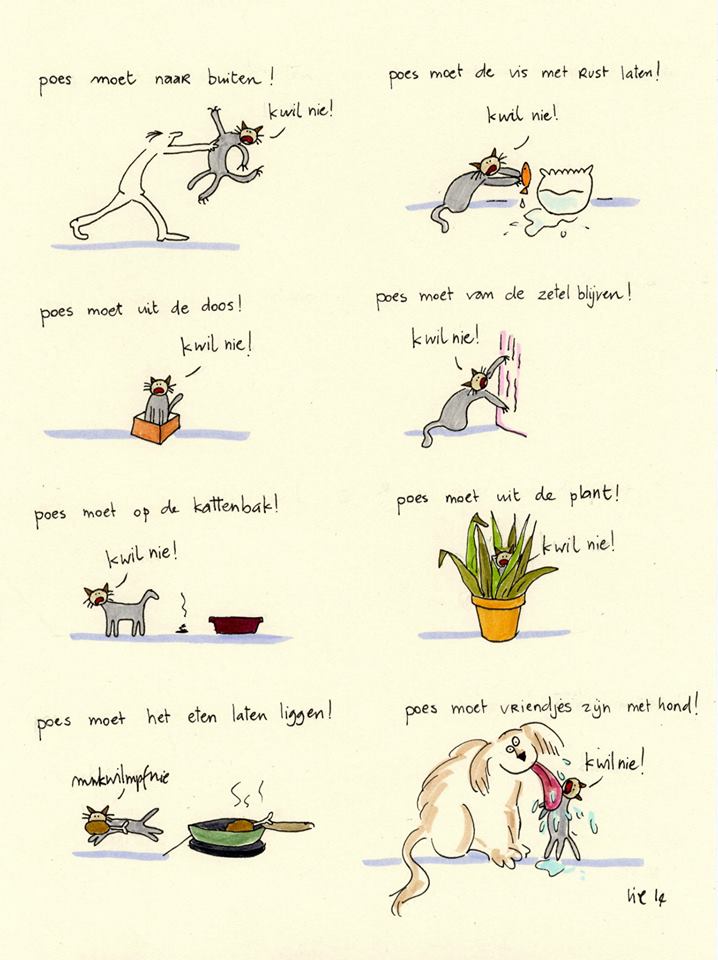 poes moet naar buiten!
kwil nie!
poes moet de vis met rust laten!
kwil nie!
poes moet uit de doos!
kwil nie!
poes moet van de zetel blijven!
kwil nie!
poes moet op de kattenbak!
kwil nie!
poes moet uit de plant!
kwil nie!
poes moet het eten laten liggen!
mmkwilmpfnie
poes moet vriendjes zijn met hond!
kwil nie!